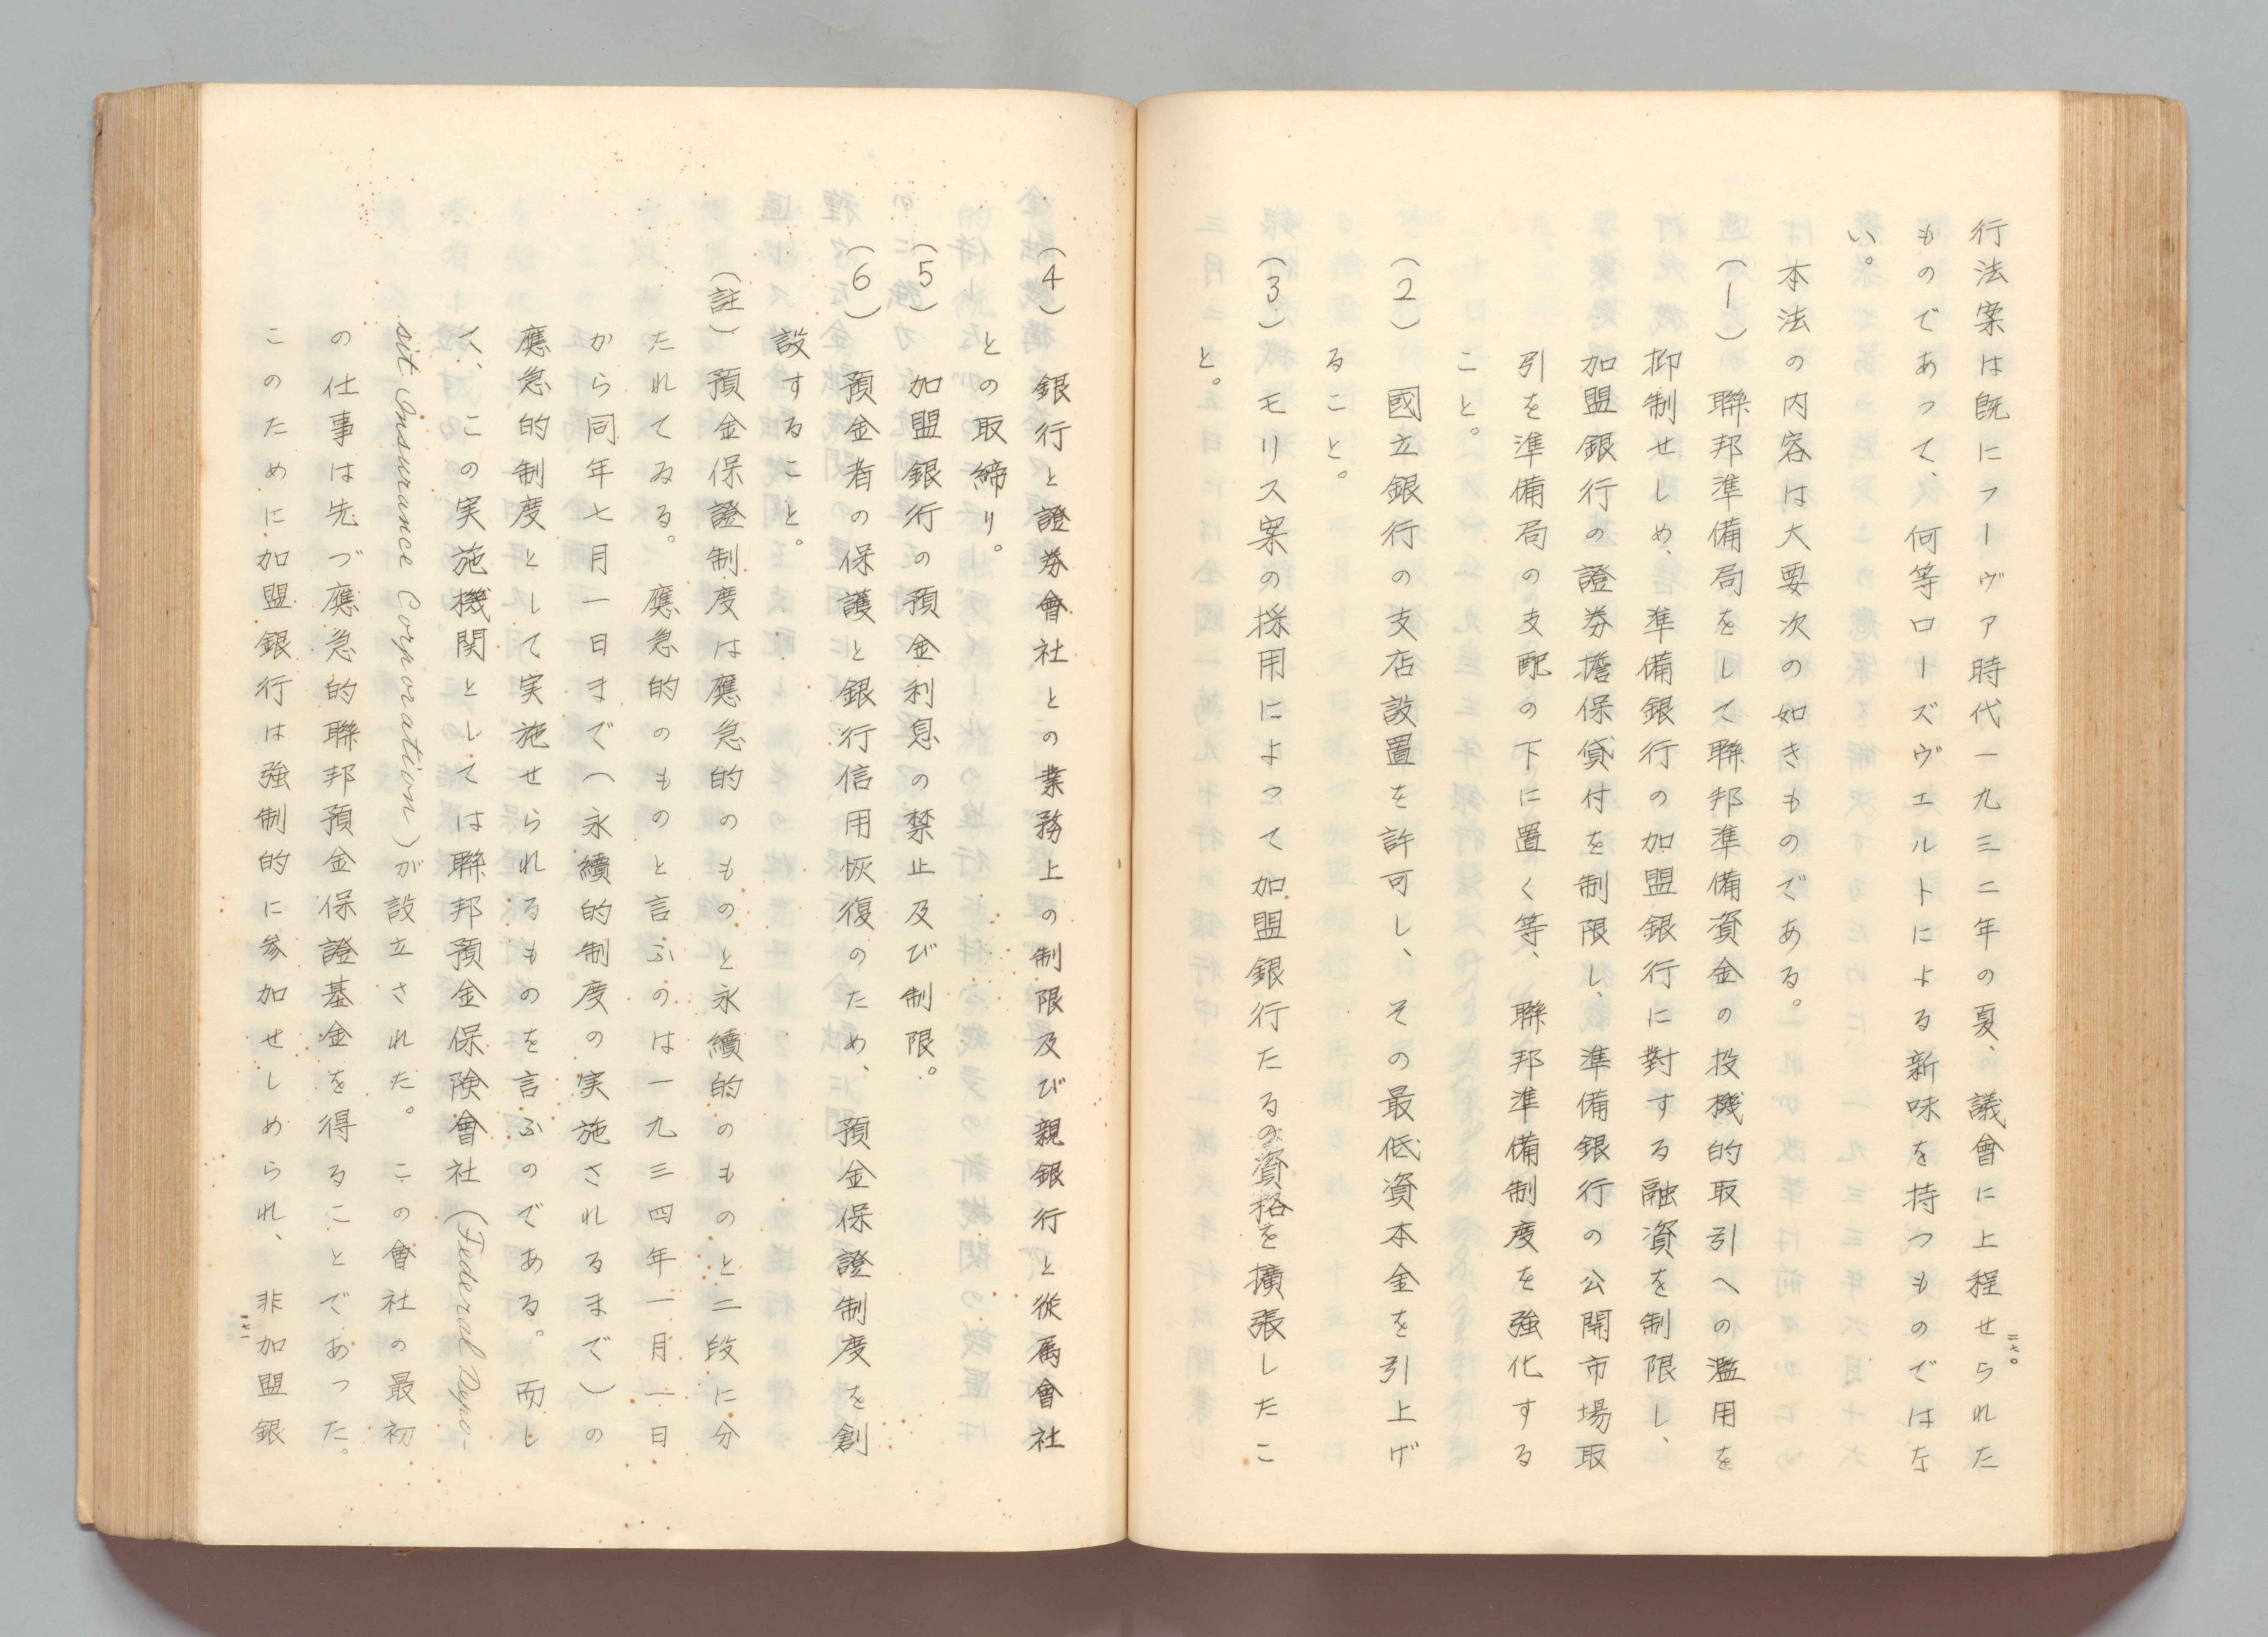 行法案は既にフーヴァ時代一九三二年の夏、議會に上程せられた
ものであつて、何等ローズヴエルトによる新味を持つものではな
い。
本法の内容は大要次の如きものである。
(1) 聯邦準備局をして聯邦準備資金の投機的取引への濫用を
抑制せしめ、準備銀行の加盟銀行に對する融資を制限し、
加盟銀行の證券擔保貸付を制限し、準備銀行の公開市場取
引を準備局の支配の下に置く等、聯邦準備制度を強化する
こと。
(2) 國立銀行の支店設置を許可し、その最低資本金を引上げ
ること。
(3) モリス案の採用によつて加盟銀行たるの資格を擴張したこ
と。
二七〇
(4) 銀行と證券會社との業務上の制限及び親銀行と従属會社
との取締り。
(5) 加盟銀行の預金利息の禁止及び制限。
(6) 預金者の保護と銀行信用恢復のため、預金保證制度を創
設すること。
(註) 預金保證制度は應急的のものと永續的のものと二段に分
たれてゐる。應急的のものと言ふのは一九三四年一月一日
から同年七月一日まで(永續的制度の実施されるまで)の
應急的制度として実施せられるものを言ふのである。而し
て、この実施機関としては聯邦預金保険會社(Federal Depo-
sit Insurance Corporation)が設立された。この會社の最初
の仕事は先づ應急的聯邦預金保證基金を得ることであつた。
このために加盟銀行は強制的に参加せしめられ、非加盟銀